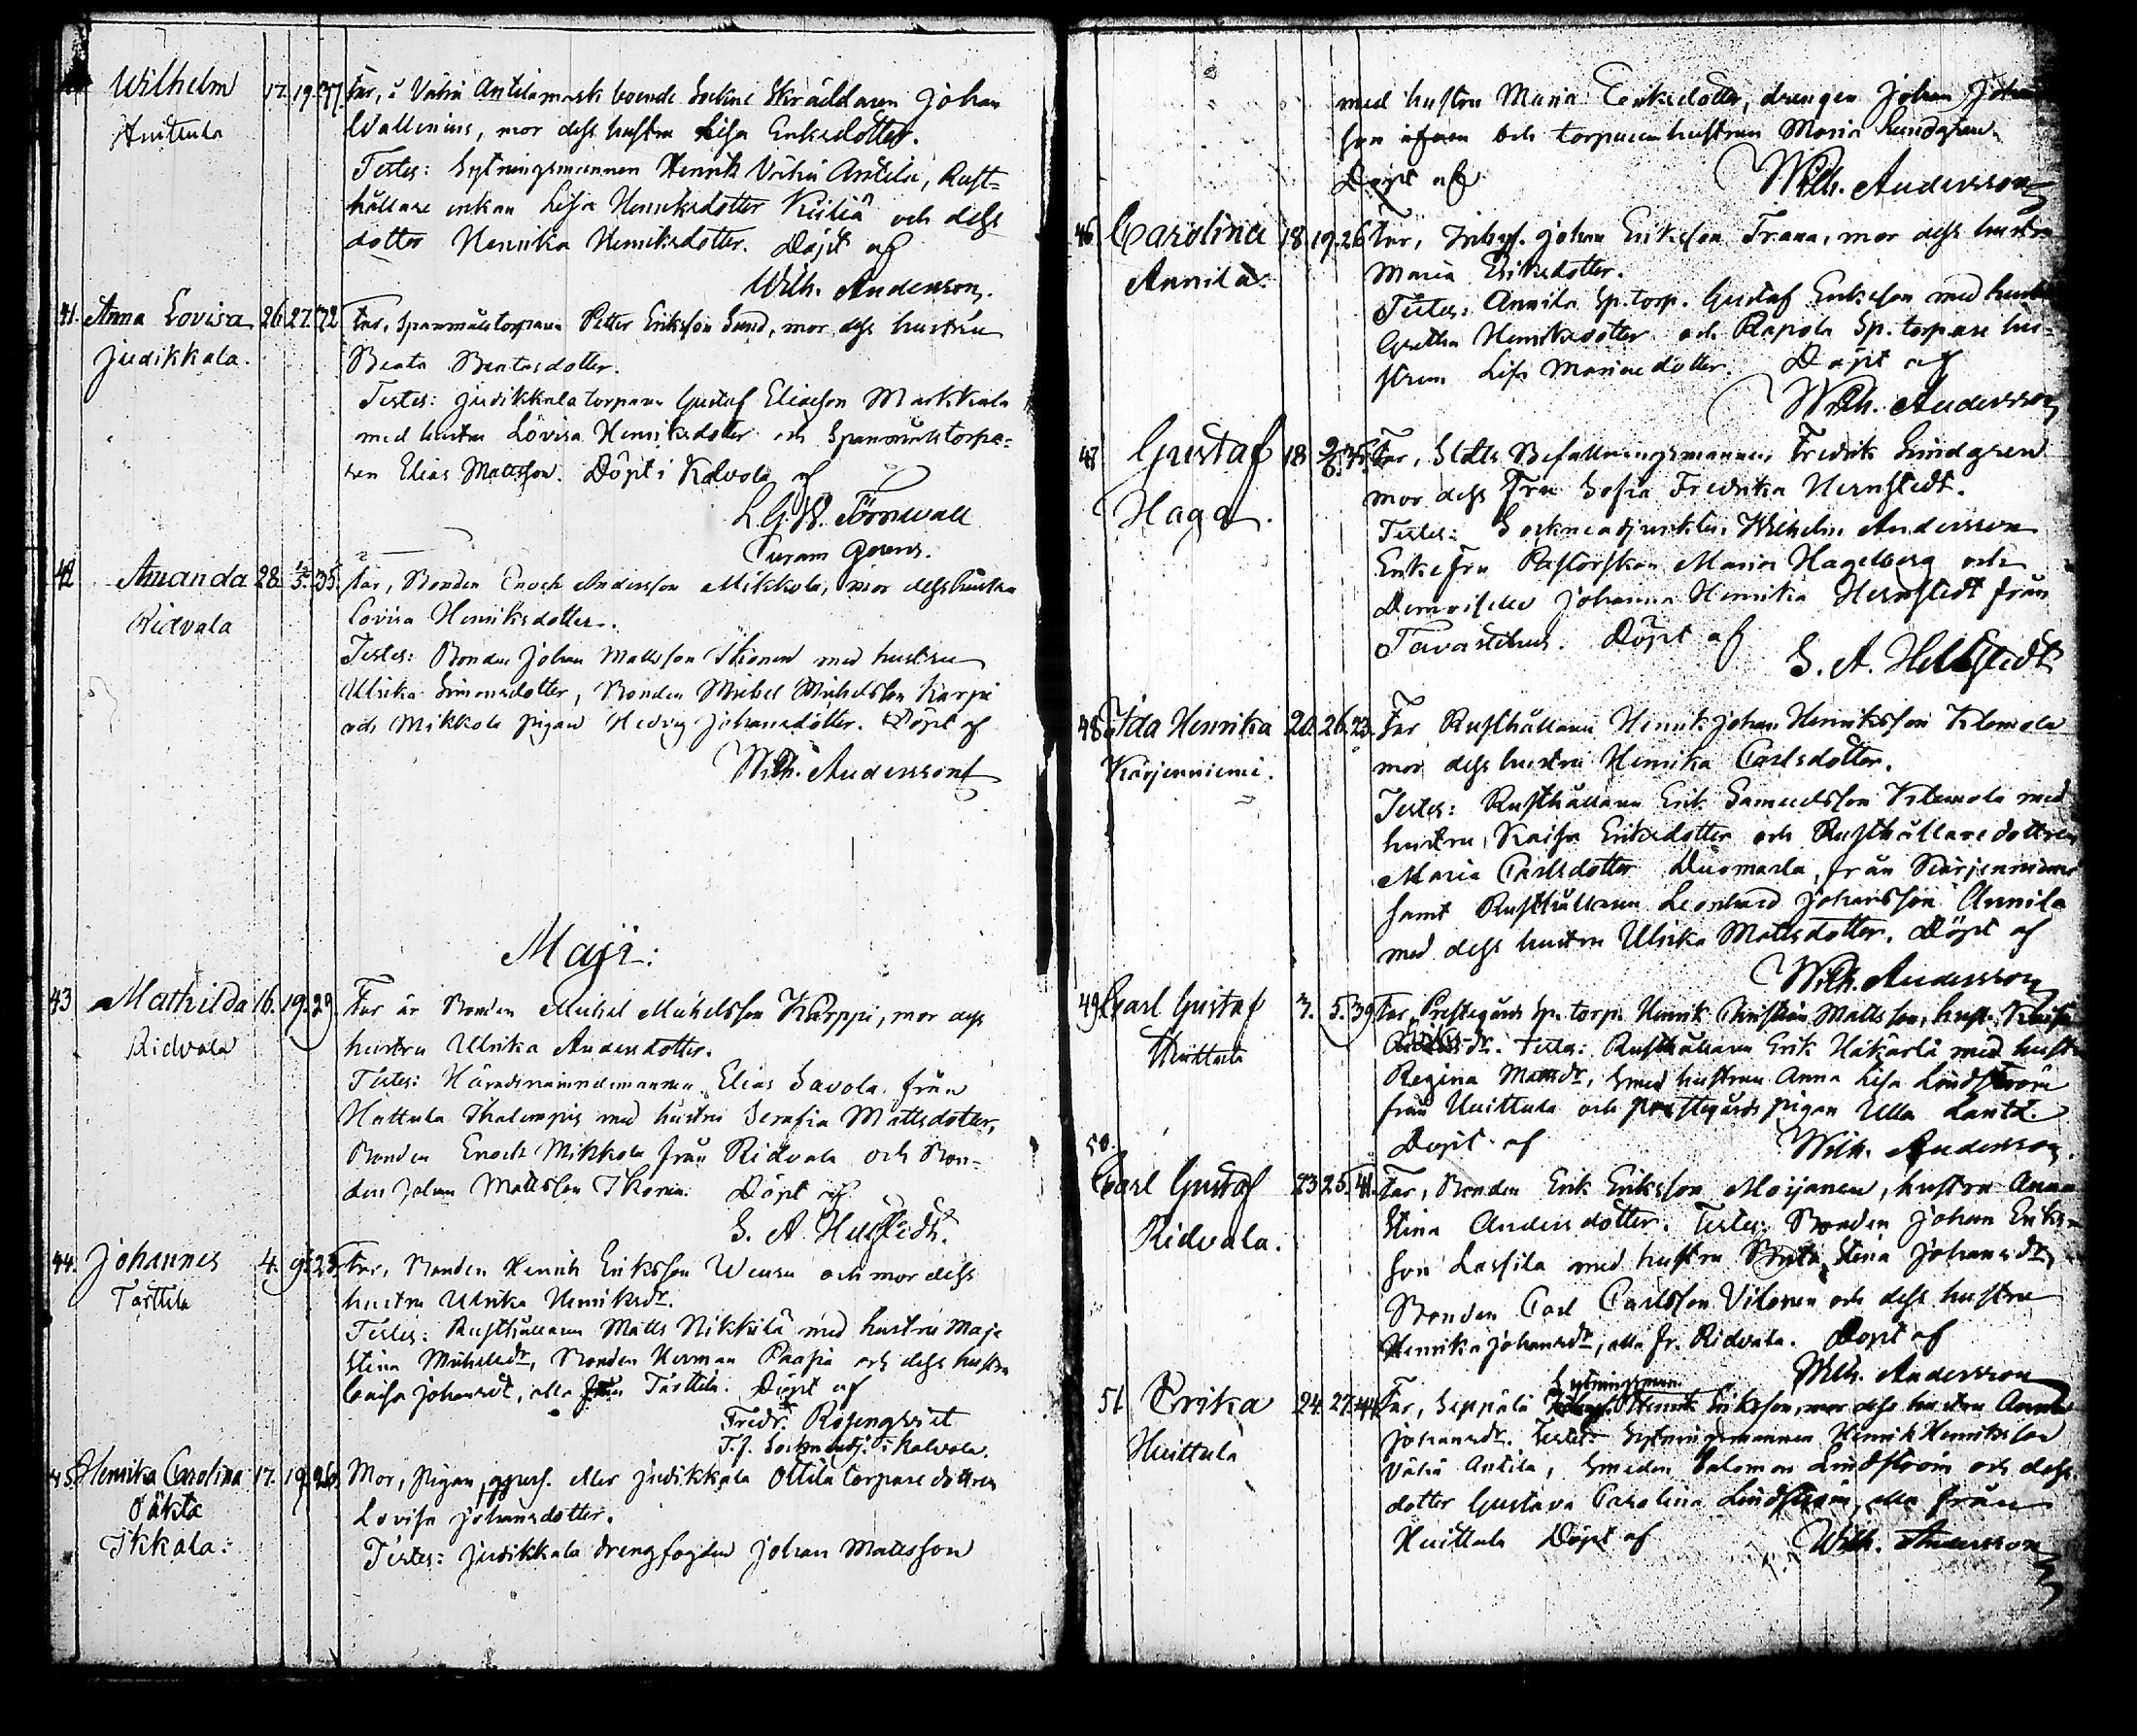 Wilhelm 17. 19. 37 Far, å Vähä Antila mark boende Sockne Skräddaren Johan
Huittula Wallenius, mor dess hustru Lisa Eriksdotter.
Testes: Sytningsmannen Henrik Vähä Antila, Rust-
hållare enkan Lisa Henriksdotter och dess
dotter Henrika Henriksdotter. Döpt af
Wilh. Andersson.
41. Anna Lovisa 26. 27. 72 Far, Spanmålstorparen Petter Eriksson Sund, mor dess hustru
Judikkala. Beata Beatasdotter.
Testes: Judikkala torparen Gustaf Eliasson Markkala
med hustru Lovisa Henriksdotter och Spanmålstorpa-
ren Elias Mattsson. Döpt i Kalvola af
L. G. W. Törnwall
Curam Gerens.
42 Amanda 28. 1/5. 35. Far, Bonden Enoch Andersson Mikkola, mor dess hustru
Ridvala Lovisa Henriksdotter.
Testes: Bonden Johan Mattsson Ikonen med hustru
Ulrika Simonsdotter, Bonden Michel Michelsson Karpi
och Mikkola pigan Hedvig Johansdotter. Döpt af
Wilh. Andersson
Maji:
43 Mathilda 16. 19. 29. Far är Bonden Michel Michelsson Karppi, mor dess
Ridvala hustru Ulrika Andersdotter.
Testes: Häradsnämndemannen Elias Savola från
Hattula Ihalempis med hustru Serafia Mattsdotter,
Bonden Enoch Mikkola från Ridvala och Bon-
den Johan Mattsson Ikonen. Döpt af
S. A. Hellstedt.
44. Johannes 4. 9. 23. Far, Bonden Henrik Eriksson Wensu och mor dess
Tarttila hustru Ulrika Henriksdr.
Testes: Rusthållaren Matts Nikkilä med hustru Maja
Stina Michelsdr, Bonden Herman Paapia och dess hustru
Caisa Johansdr, alla från Tarttila. Döpt af
Fredr. Rosengvist
T. f. Sockneadj. i Kalvola.
45. Henrika Carolina 17. 19. 26. Mor, pigan eller Judikkala Ottila torpare dottren
Oäkta Lovisa Johansdotter.
Ikkala: Testes: Judikkala drengfogden Johan Mattsson
med hustru Maria Eriksdotter, drengen Johan Johans
son och torparenhustrun Maria Lundgren.
Döpt af Wilh. Andersson
46 Carolina 18. 19. 26 Far, Inhys. Johan Eriksson Frana, mor dess hustru
Annila. Maria Eriksdotter.
Testes: Annila Sp. torp. Gustaf Eriksson med hustru
Gretha Henriksdotter och Rapola Sp. torpare hu-
strun Lisa Mariaedotter. Döpt af
Wilh. Andersson
47 Gustaf 18 2/6. 35. Far, Slotts Befallningsmannen Fredrik Lindgren
Haga. mor dess Fru Sofia Fredrika Hernstedt.
Testes: Sockneadjunkten Wilhelm Andersson
Enkefru Pastorskan Maria Hagelberg och
Demoiselle Johanna Henrika Hernstedt från
Tavastehus. Döpt af S. A. Hellstedt
48 Ida Henrika 20. 26. 23. Far Rusthållaren Henrik Johan Henriksson Klemola
Kärjenniemi. mor dess hustru Henrika Carlsdotter.
Testes: Rusthållaren Erik Samuelsson Klemola med
hustru Kaisa Eriksdotter och Rusthållare dottren
Maria Carlsdotter Duomarla, från Kärjenniemi
samt Rusthållaren Leonhard Johansson Annila
med dess hustru Ulrika Mattsdotter. Döpt af
Wilh. Andersson
49 Carl Gustaf 3. 5. 39 Far, Prestegårds Sp. torp. Henrik Christian Mattsson, hust. Kaisa
Huittula Testes: Rusthållaren Erik Häkärlä med hustru
Regina Mattsdr, Smed hustrun Anna Lisa Lindström
från Huittula och prestegårds pigan Ulla Lantz.
Döpt af Wilh. Andersson.
50.
Carl Gustaf 23 25. 41. Far, Bonden Erik Eriksson Moijanen, hustru Anna
Ridvala. Stina Andersdotter. Testes: Bonden Johan Eriks-
son Lassila med hustru Brita Stina Johansdr,
Bonden Carl Carlsson Vilonen och dess hustru
Henrika Johansdr, alla fr. Ridvala. Döpt af
Wilh. Andersson
Sytningsman
51 Erika 24. 27. 44 Far, Seppälä Henrik Eriksson, mor dess hustru Anna
Huittula Johansdr. Testes: Sytningsmannen Henrik Henriksson
Vähä Antila, Smeden Salomon Lindström och dess
dotter Gustava Carolina Lindström, alla från
Huittula Döpt af Wilh. Andersson